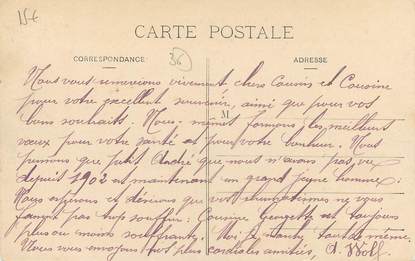 15€
36
CARTE POSTALE
CORRESPONDANCE
ADRESSE
M
Nous vous remercions vivement, chers Cousin et Cousine
pour votre excellent souvenir, ainsi que pour vos
bons souhaits. Nous-mêmes formons les meilleurs
vœux pour votre santé et pour votre bonheur. Nous
pensons que petit André que nous n'avons pas vu
depuis 1902 est maintenant un grand jeune homme.
Nous espérons et désirons que vos rhumatismes ne vous
fassent pas trop souffrir. Cousine Georgette est toujours
plus ou moins souffrante. tout de même.
Nous vous envoyons nos plus cordiales amitiés, A. Wolf